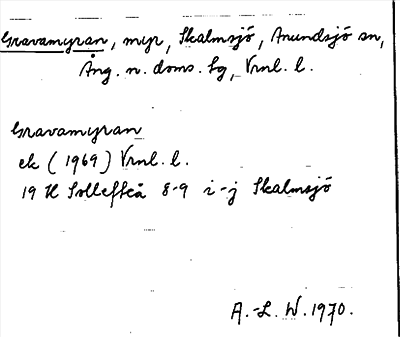 Gravamyran, myr, Skalmsjö, Anundsjö sn,
Ång. n. doms. lg, Vrnl. l.
Gravamyran
ek (1969) Vrnl. l.
19 H Sollefteå 8-9 i-j Skalmsjö
A.-L. W. 1970.